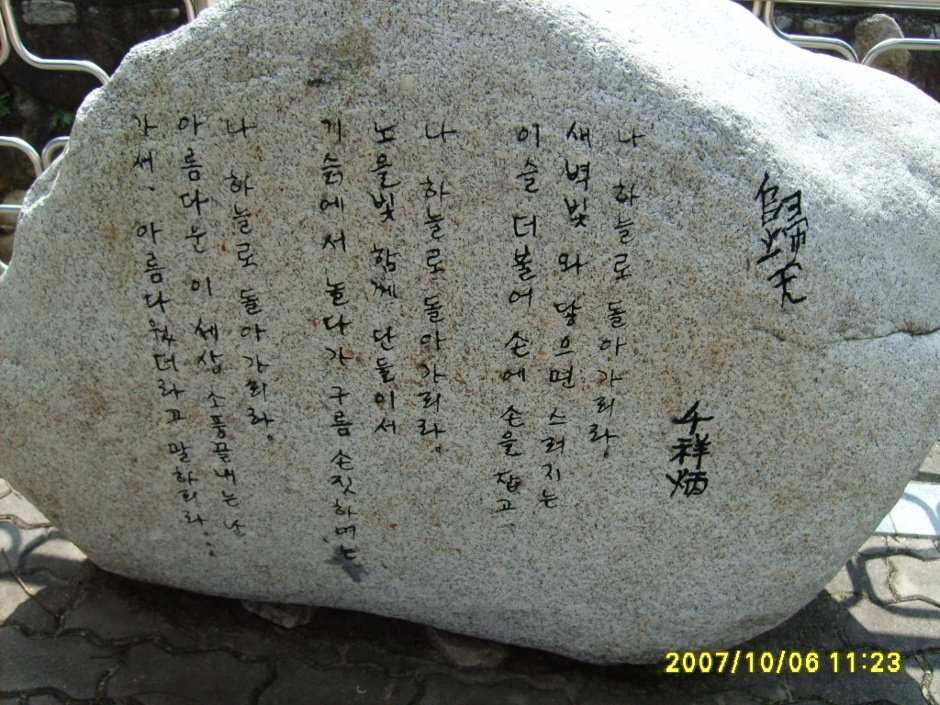 歸天
千祥炳
나 하늘로 돌아가리라.
새벽빛 와 닿으면 스러지는
이슬 더불어 손에 손을 잡고
나 하늘로 돌아가리라.
노을빛 함께 단둘이서
기슭에서 놀다가 구름 손짓하며는
나 하늘로 돌아가리라.
아름다운 이 세상 소풍끝내는 날
가서, 아름다웠더라고 말하리라...
2007/10/06 11:23